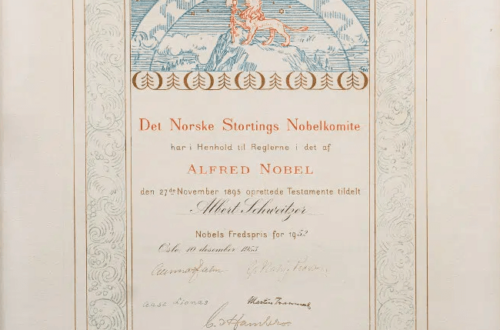 Det Norske Stortings Nobelkomite
har i Henhold til Reglerne i det af
ALFRED NOBEL
den 27de November 1895 oprettede Testamente tildelt
Albert Schweitzer
Nobels Fredspris for 1952
Oslo, 10 desember 1953
Gunnar Jahn
Aase Lionæs Martin Tranmæl
C J Hambro